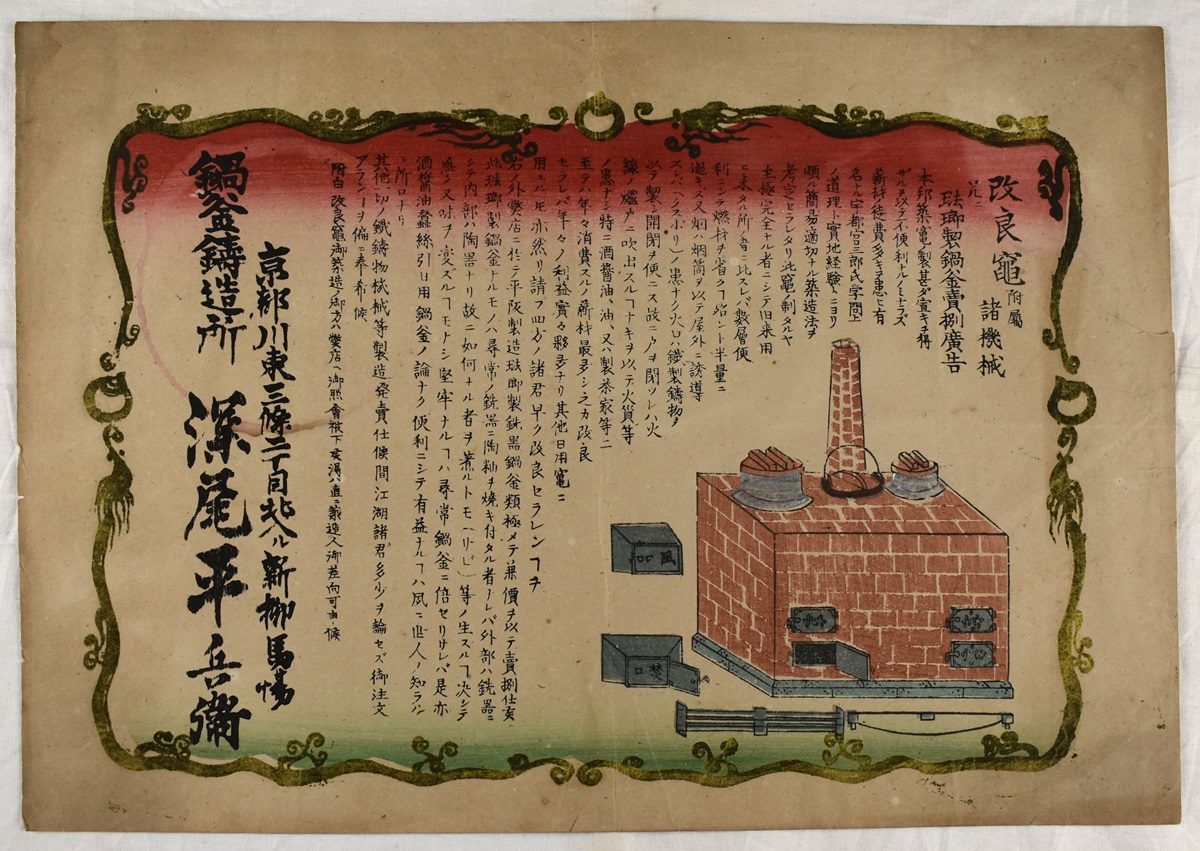 改良竈附屬諸機械
並ニ
琺瑯製鍋釜賣捌廣告
本邦築竈ノ製甚ダ宜キヲ得
ザルヲ以テ不便利ナルノミナラズ
薪材ノ徒費多キヲ患ヒ有
名ナル宇都宮三郎氏学問上
ノ道理ト實地経験トニヨリ
頗ル簡易適切ナル築造法ヲ
考定セラレタリ此竈ノ制タルヤ
至極完全ナル者ニシテ旧来用
ヒ来タル所ノ者ニ比スレバ数層便
利ニシテ燃材ヲ省クヿ殆ント半量ニ
過キズ又烟ハ烟筒ヲ以テ屋外ニ誘導
スレバ(クスボリ)ノ患ナク火口ハ鐵製鋳物ヲ
以テ製シ開閉ヲ便ニス故ニ之ヲ閉ツレハ火
線ノ爐戸ニ吹出スルヿナキヲ以テ火災等
ノ患ナシ特ニ酒醤油、油、又ハ製茶家等ニ
至テハ年々消費スル薪材最多シ之カ改良
セラレバ年々ノ利益實ニ夥多ナリ其他日用竈ニ
用ユルモ亦然リ請フ四方ノ諸君早ク改良セラレンヿヲ
右ノ外弊店ニ於テ平阪製造琺瑯製銕器鍋釜類極メテ廉價ヲ以テ賣捌仕候
此琺瑯製鍋釜ナルモノハ尋常ノ銑器ニ陶釉ヲ焼キ付タル者ナレバ外部ハ銑器ニ
シテ内部ハ陶器ナリ故ニ如何ナル者ヲ煮ルトモ(サビ)等ノ生スルヿ决シテ
無ク又味ヲ変ズルヿモナシ堅牢ナルヿハ尋常鍋釜ニ倍セリサレバ是亦
酒醤油蠶絲引日用鍋釜ノ論ナク便利ニシテ有益ナルヿハ夙ニ世人ノ知ラルヽ
所ナリ
其他一切ノ鐵鋳物機械等製造発賣仕候間江湖諸君多少ヲ論セズ御注文
アランヿヲ偏ニ奉希候
附白 改良竈御築造ノ御方ハ弊店ヘ御照會被下度湯直ニ築造人御差向可申候
京都川東三條二丁目北入ル新柳馬場
鍋釜鋳造所 深尾平兵衞
風口
焚口